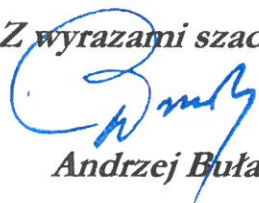 Z wyrazami szac
Andrzej Buła